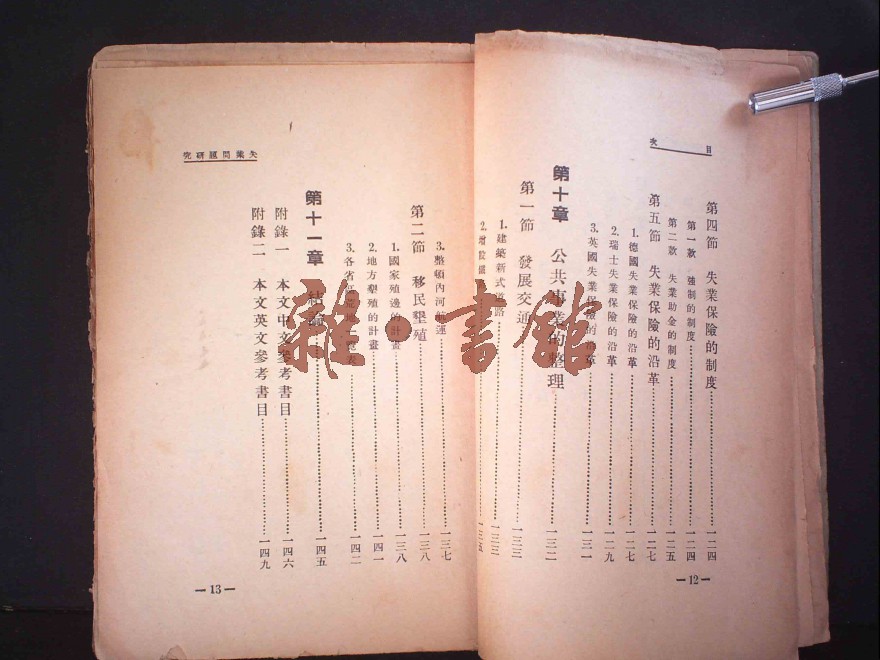 目 次
第四節 失業保險的制度 一二四
第一款 強制的制度 一二四
第二款 失業助金的制度 一二五
第五節 失業保險的沿革 一二七
1. 德國失業保險的沿革 一二七
2. 瑞士失業保險的沿革 一二九
3. 英國失業保險的沿革 一三一
第十章 公共事業的整理 一三二
第一節 發展交通 一三三
1. 建築新式道路 一三三
2. 增設鐵 一三五
—12—
失業問題研究
3. 整頓內河航運 一三七
第二節 移民墾殖 一三八
1. 國家殖邊的計畫 一三八
2. 地方墾殖的計畫 一四一
3. 各省 一四二
第十一章 結論 一四五
附錄一 本文中文參考書目 一四六
附錄二 本文英文參考書目 一四九
—13—
雜·書館